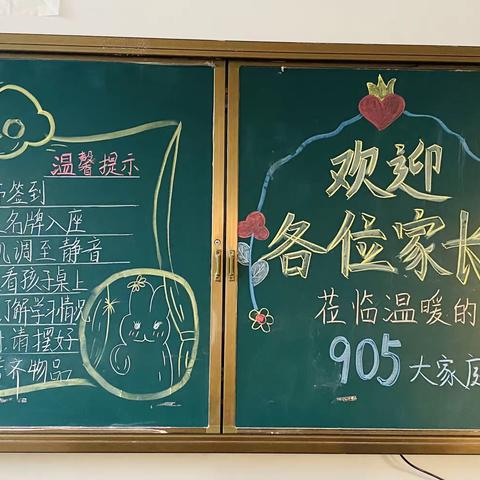 温馨提示
签到
名牌入座
调至静音
看孩子桌上
解学习情况
请摆好
齐物品
欢迎
各位家长
莅临温暖的
905大家庭